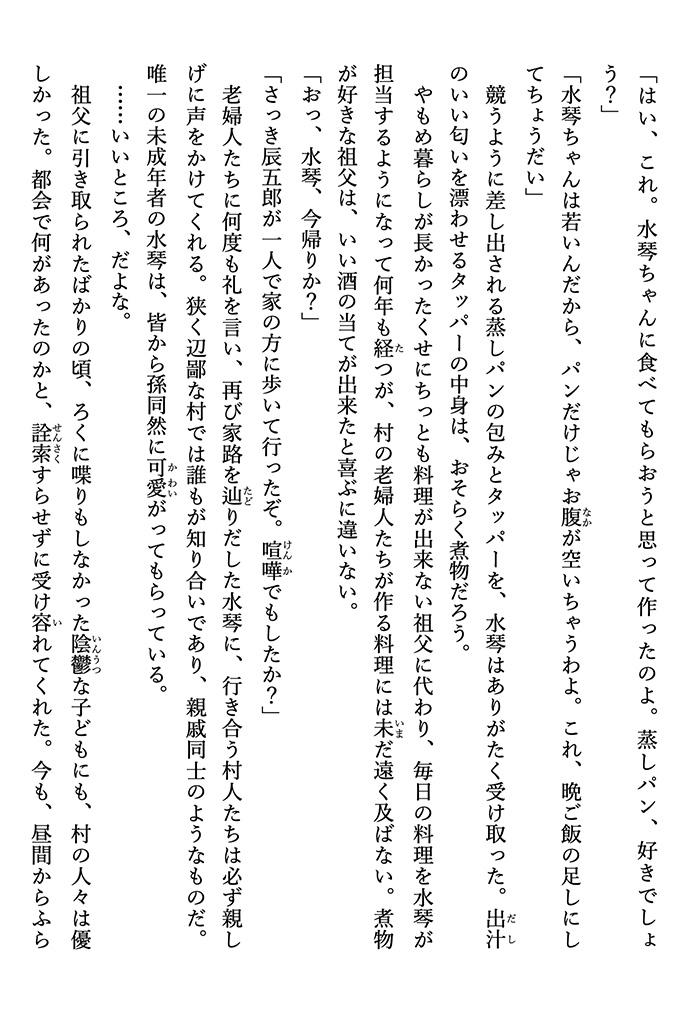 「はい、これ。水琴ちゃんに食べてもらおうと思って作ったのよ。蒸しパン、好きでしょ
う?」
「水琴ちゃんは若いんだから、パンだけじゃお腹が空いちゃうわよ。これ、晩ご飯の足しにし
てちょうだい」
　競うように差し出される蒸しパンの包みとタッパーを、水琴はありがたく受け取った。出汁
のいい匂いを漂わせるタッパーの中身は、おそらく煮物だろう。
　やもめ暮らしが長かったくせにちっとも料理が出来ない祖父に代わり、毎日の料理を水琴が
担当するようになって何年も経つが、村の老婦人たちが作る料理には未だ遠く及ばない。煮物
が好きな祖父は、いい酒の当てが出来たと喜ぶに違いない。
「おっ、水琴、今帰りか?」
「さっき辰五郎が一人で家の方に歩いて行ったぞ。喧嘩でもしたか?」
　老婦人たちに何度も礼を言い、再び家路を辿りだした水琴に、行き合う村人たちは必ず親し
げに声をかけてくれる。狭く辺鄙な村では誰もが知り合いであり、親戚同士のようなものだ。
唯一の未成年者の水琴は、皆から孫同然に可愛がってもらっている。
　……いいところ、だよな。
　祖父に引き取られたばかりの頃、ろくに喋りもしなかった陰鬱な子どもにも、村の人々は優
しかった。都会で何があったのかと、詮索すらせずに受け容れてくれた。今も、昼間からふら